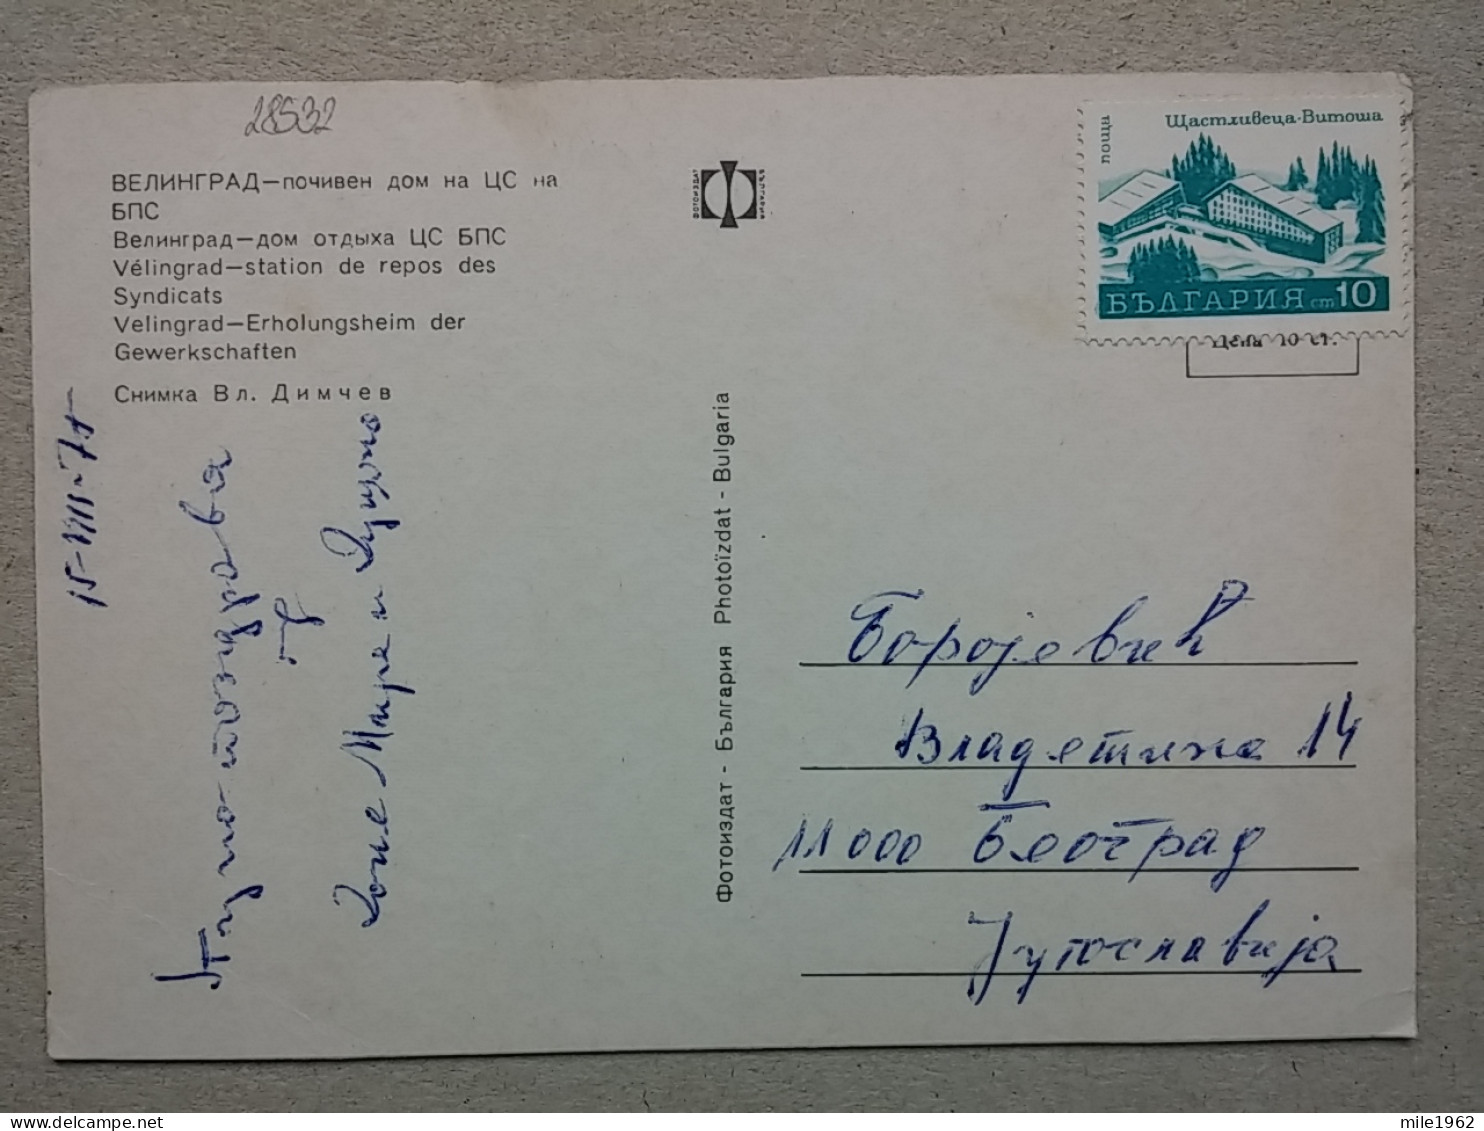 28532
ВЕЛИНГРАД—почивен дом на ЦС на
БПС
Велинград—дом отдыха ЦС БПС
Vélingrad—station de repos des
Syndicats
Velingrad—Erholungsheim der
Gewerkschaften
Снимка Вл. Димчев
ФОТОИЗДАТ
БЪЛГАРИЯ
поща
Щастливеца-Витоша
БЪЛГАРИЯ ст 10
Цена 10 ст.
15-VIII-75
Пуно поздрава
Фотоиздат - България Photoïzdat - Bulgaria
Боројевић
Владетина 14
11000 Београд
Југославија
mile1962